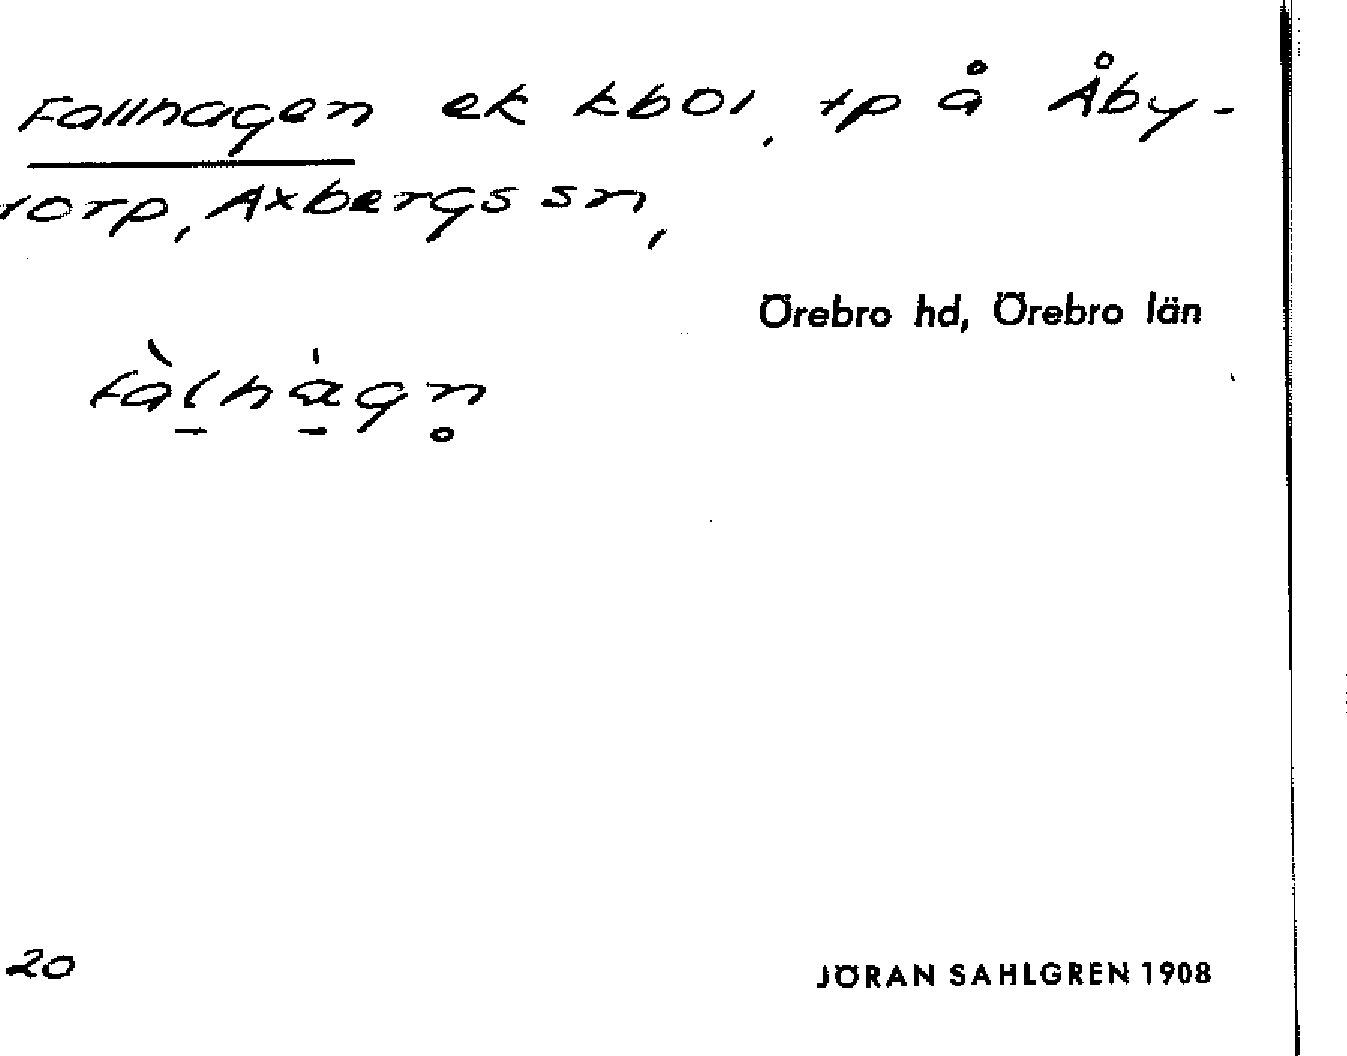 Fallhagen ek kbOl, tp å Åby-
torp, Axbergs sn,
Örebro hd, Örebro län
fàlhágn̥
20
JÖRAN SAHLGREN 1908